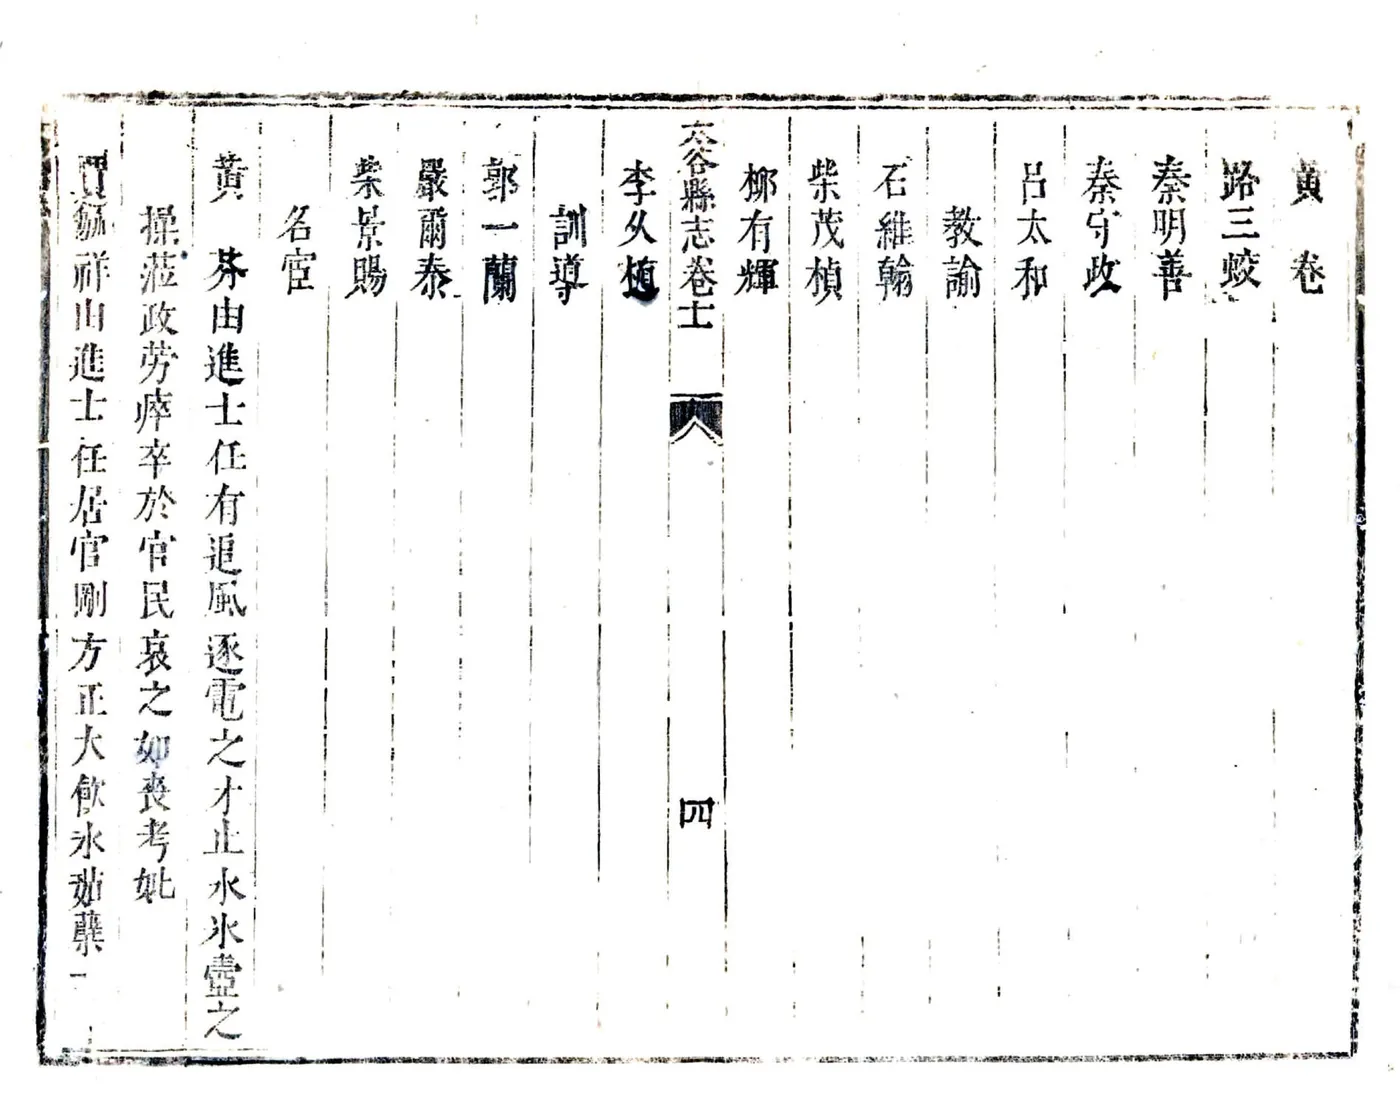 黄 卷
路三蛟
秦明善
秦守政
吕太和
教諭
石維翰
柴茂楨
柳有輝
太谷縣志卷十
四
李从植
訓導
郭一蘭
嚴爾泰
柴景賜
名宦
黄 芬由進士任有追風逐電之才止水氷壺之
操蒞政劳瘁卒於官民哀之如丧考妣
祥由進士任居官剛方正大飲氷茹蘗一